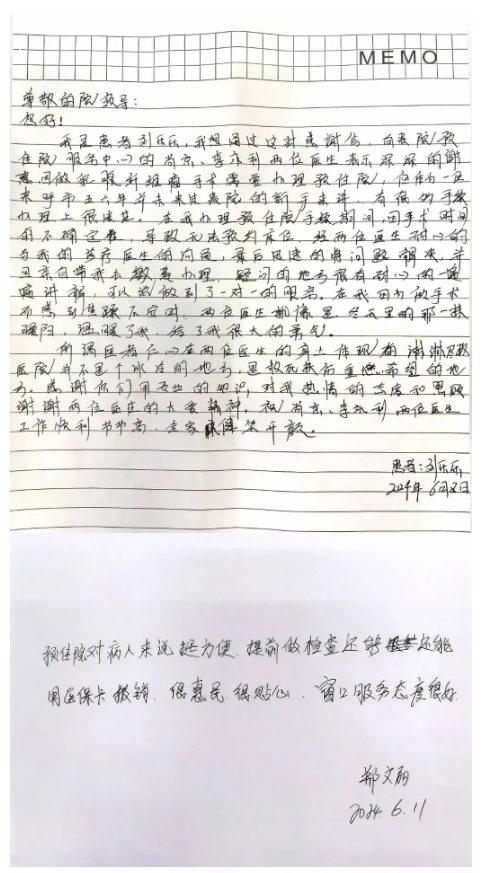 MEMO
尊敬的院领导：
您好！
我是患者刘乐乐，我想通过这封感谢信，向贵院预
住院服务中心的尚京、李永利两位医生表示深深的谢
意因做乳腺纤维瘤手术需要办理预住院，但作为一直
来呼市五六年并未来过医院的新手来讲，有很多手续
办理上很迷茫。在我办理预住院手续期间，因手术时间
的不确定性，导致无法预约床位，经两位医生耐心的
与我的主疗医生的问通，最后迅速的将问题解决，并
且亲自带我去缴费办理，疑问的地方很有耐心的一遍
遍讲解，可以说做到了一对一的服务。在我因为做手术
而感到焦躁不定时，两位医生都像是冬天里的那一抹
暖阳，温暖了我，给了我很大的勇气。
所谓医者仁心在两位医生的身上体现
医院并不是个冰冷的地方，是救死扶伤重燃希望的地
方。感谢你们用专业的知识，对我热情的态度和照顾
谢谢两位医生的大爱精神。祝尚京、李永利两位医生
工作顺利节节高，全家笑开颜。
患者：刘乐乐
2024年6月
预住院对病人来说挺方便，提前做检查还够还能
用医保卡报销，很惠民，很贴心，窗口服务态度很好
郑文丽
2024.6.11